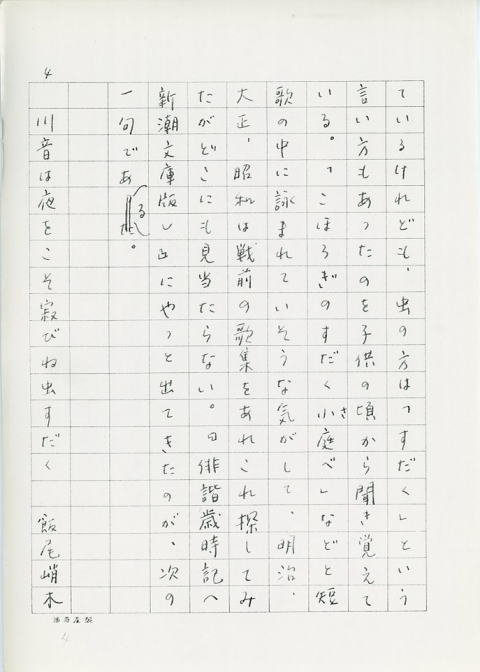 4
ているけれども、虫の方は「すだく」という
言い方もあったのを子供の頃から聞き覚えて
いる。「こほろぎのすだく小さ庭べ」などと短
歌の中に詠まれていそうな気がして、明治、
大正、昭和は戦前の歌集をあれこれ探してみ
たがどこにも見当たらない。『俳諧歳時記〈
新潮文庫版〉』にやっと出てきたのが、次の
一句である。
川音は夜をこそ寂びね出すだく 飯尾峭木
4